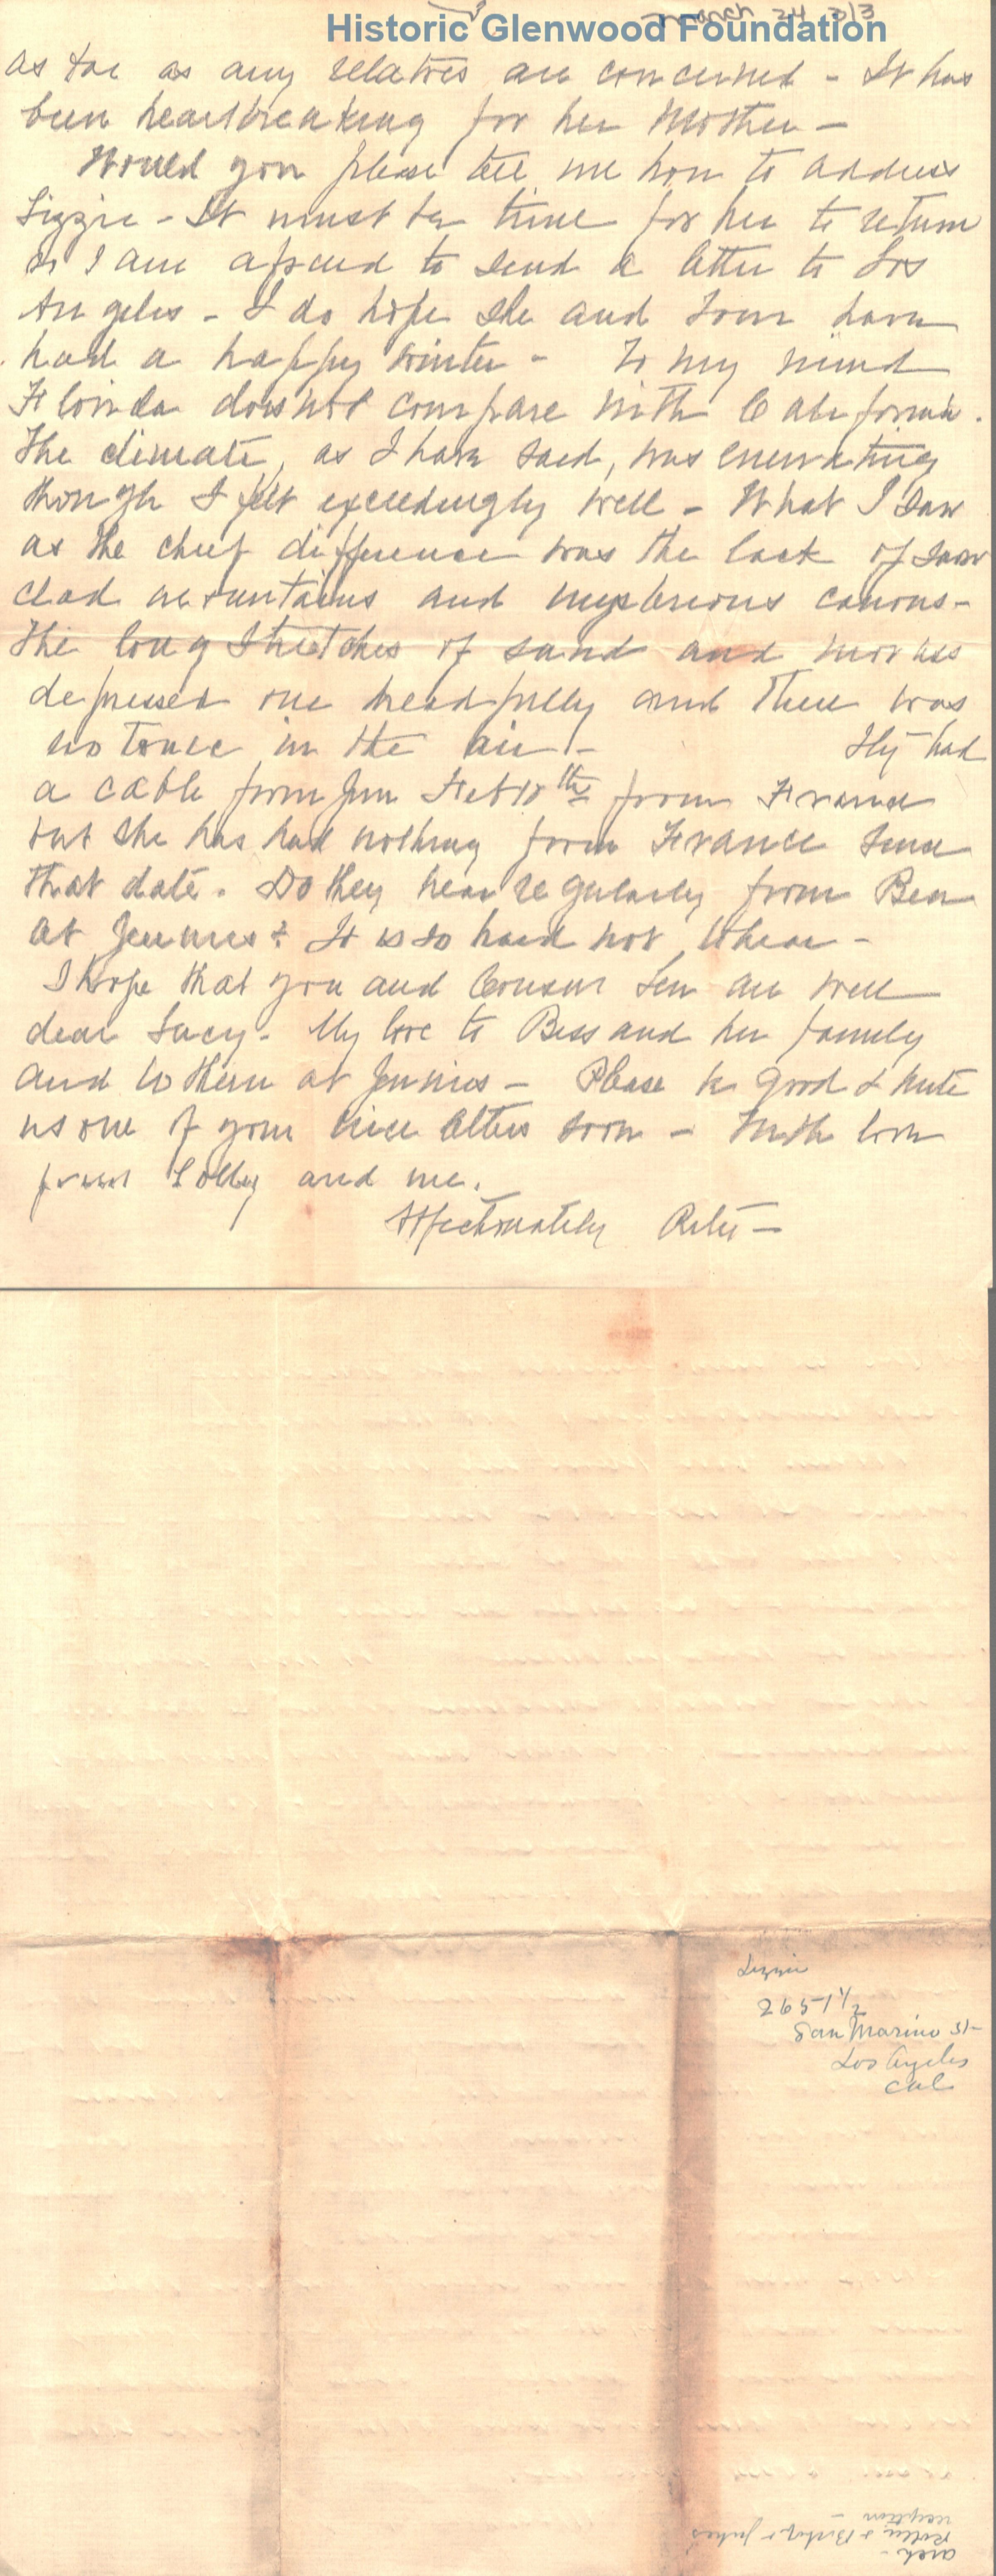 March 24 3/3
Historic Glenwood Foundation
as far as any relatives are concerned - It has
been heartbreaking for her Mother -
Would you please tell me how to address
Lizzie - It must be time for her to return
so I am afraid to send a letter to Los
Angeles - I do hope she and Tom have
had a happy winter - To my mind
Florida does not compare with California.
The climate, as I have said, was enervating
though I felt exceedingly well - What I saw
as the chief difference was the lack of snow
clad mountains and mysterious canons -
The long stretches of sand and morass
depressed one dreadfully and there was
no tonic in the air - had
a cable from Jim Feb 18th from France
but she has had nothing from France since
that date. Do they hear regularly from Ben
at Jennies? It is so hard not to hear -
I hope that you and Cousin Len are well
dear Lucy - My love to Bess and her family
and to them at Jennies - Please be good & write
us one of your nice letters soon - With love
from Lolly and me.
Affectionately
Lizzie
2651 1/2
San Marino St
Los Angeles
Cal